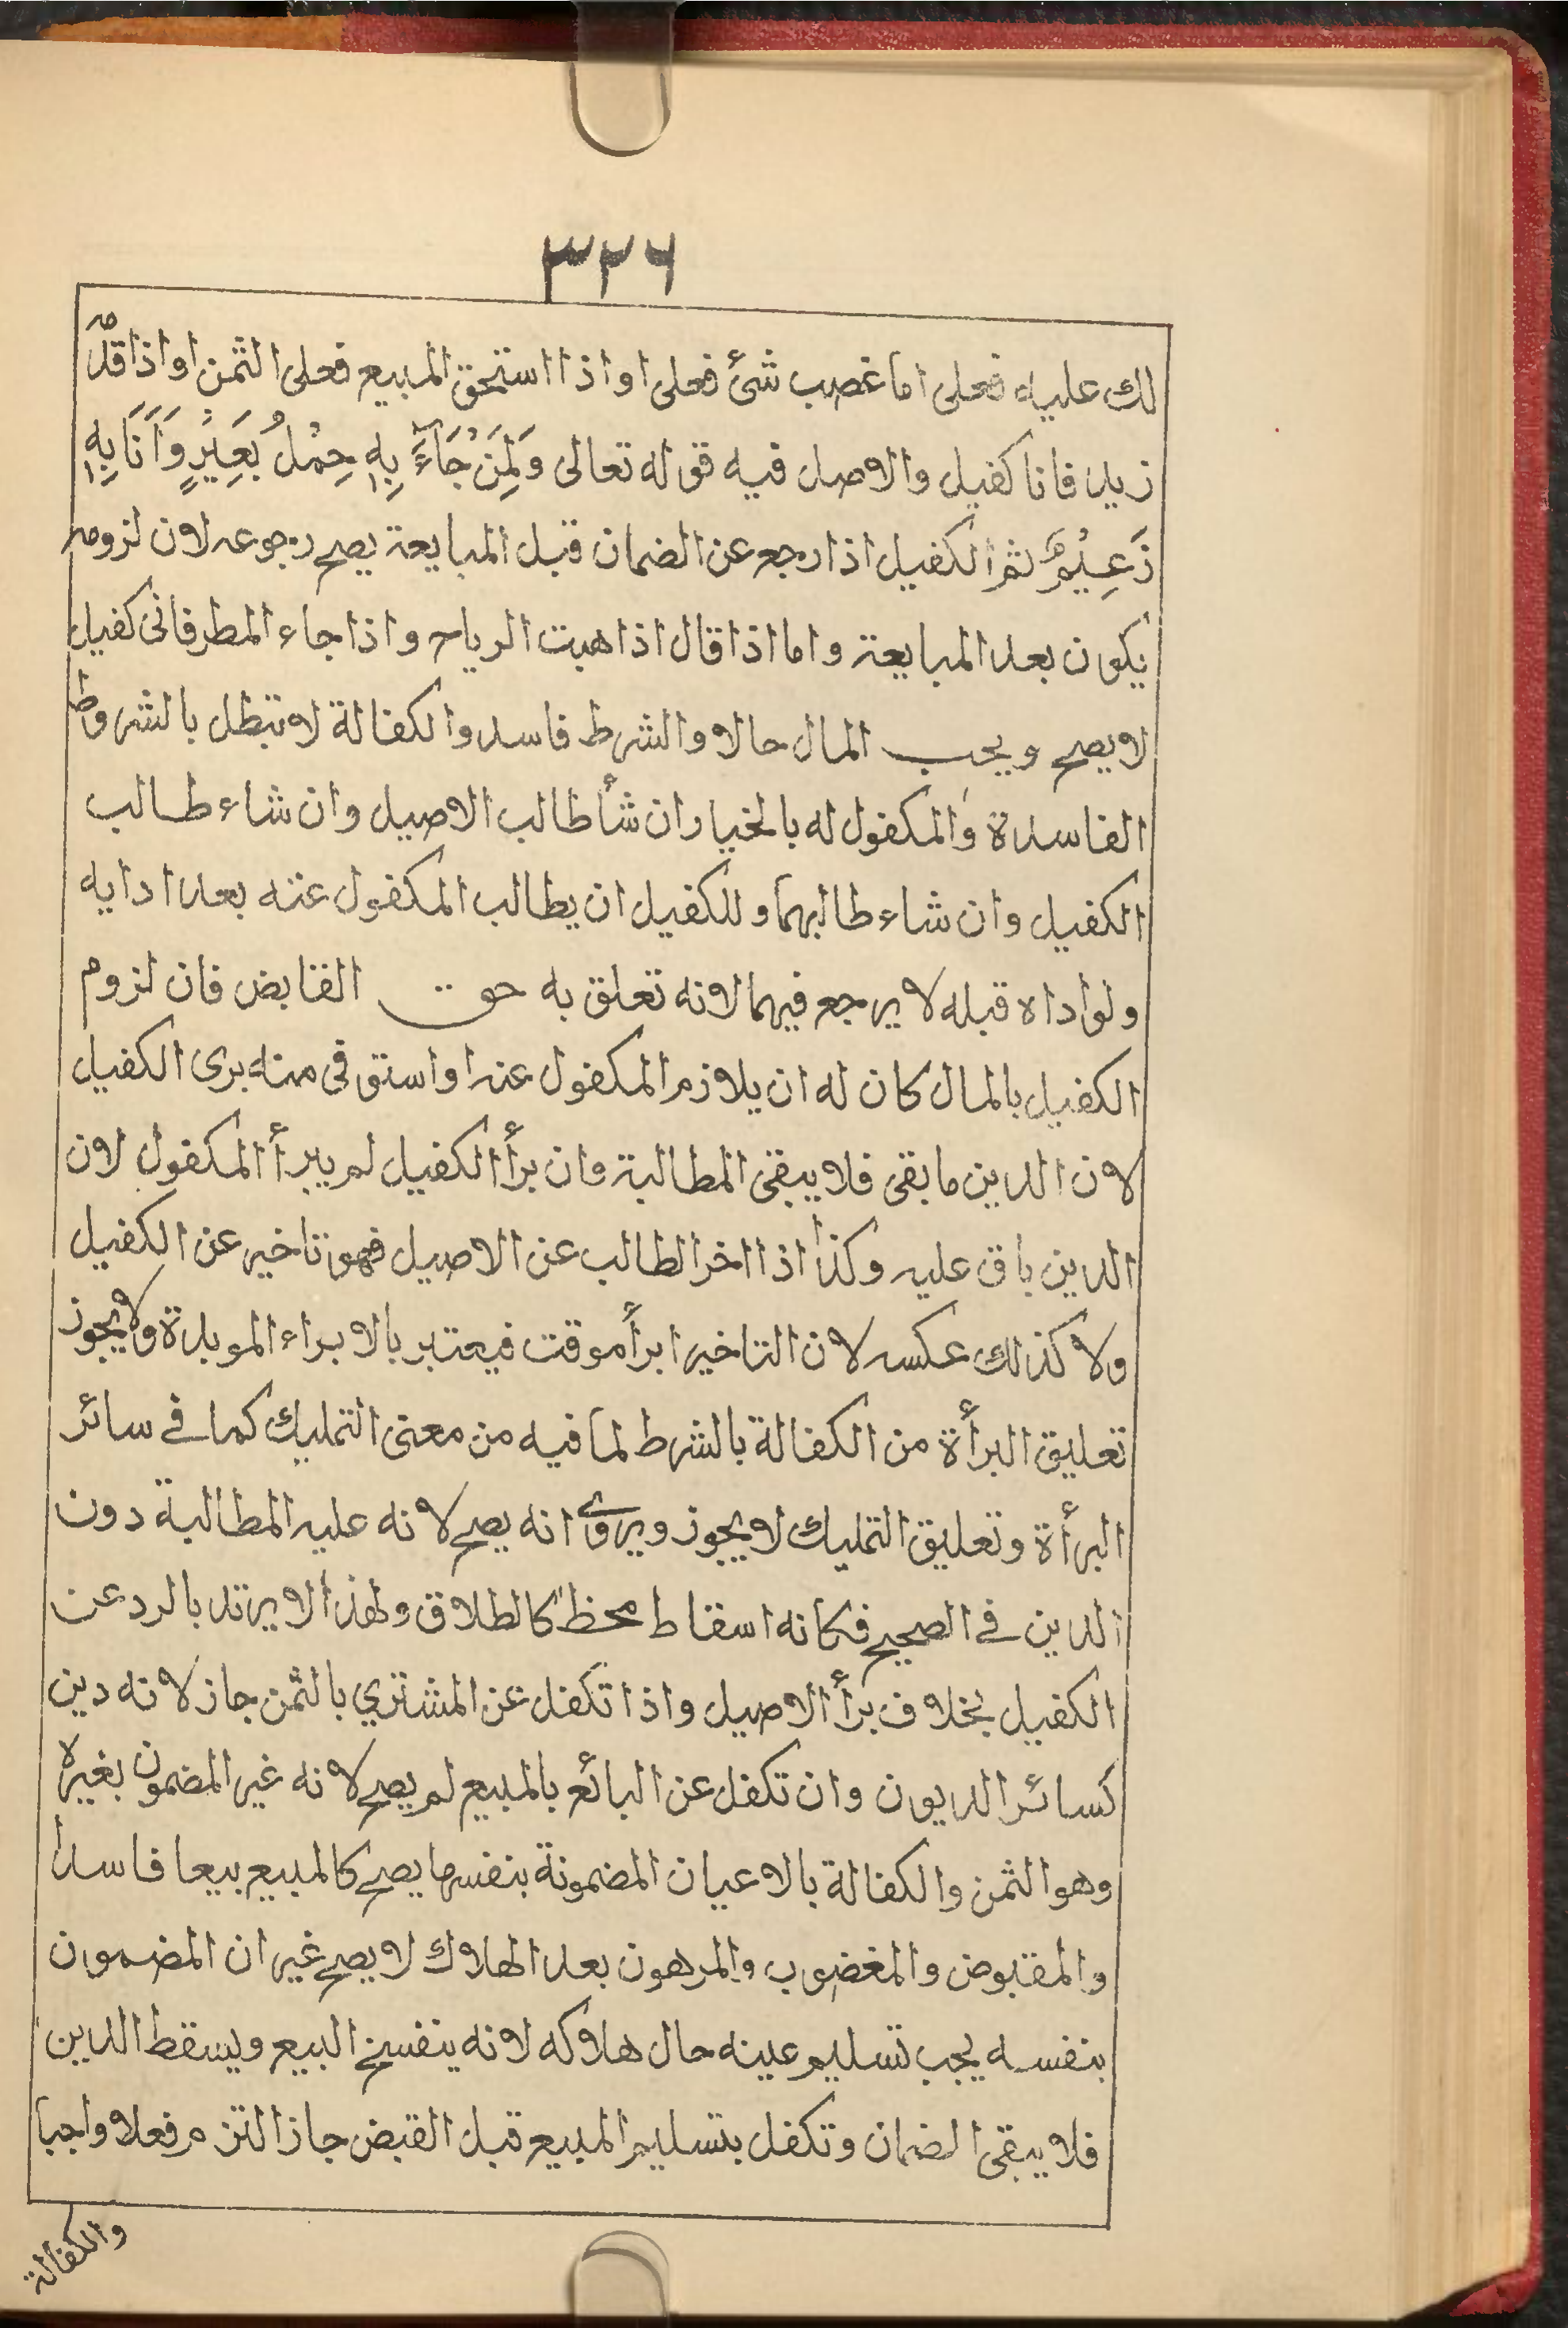 ٣٢٦
لك عليه فعلى اما غصب شئ فعلى او اذا استحق المبيع فعلى الثمن او اذا قدم
زيد فانا كفيل والاصل فيه قوله تعالى وَلِمَنْ جَآءَ بِهٖ حِمْلُ بَعِيْرٍ وَاَنَا بِهٖ
زَعِيْمٌ ثم الكفيل اذا رجع عن الضمان قبل المبايعة يصح رجوعه لان لزومه
يكون بعد المبايعة واما اذا قال اذا هبت الرياح واذا جاء المطر فانى كفيل
لا يصح ويجب المال حالا والشرط فاسد والكفالة لا تبطل بالشروط
الفاسدة والمكفول له بالخيار ان شأ طالب الاصيل وان شاء طالب
الكفيل وان شاء طالبهما وللكفيل ان يطالب المكفول عنه بعد ادايه
ولو اداه قبله لا يرجع فيهما لانه تعلق به حق القابض فان لزوم
الكفيل بالمال كان له ان يلازم المكفول عنه او استوفى منه برى الكفيل
لان الدين ما بقى فلا يبقى المطالبة وان برأ الكفيل لم يبرأ المكفول لان
الدين باق عليه وكذا اذا اخر الطالب عن الاصيل فهو تاخير عن الكفيل
ولا كذلك عكسه لان التاخير ابرأ موقت فيعتبر بالابراء الموبدة ولا يجوز
تعليق البرأة من الكفالة بالشرط لما فيه من معنى التمليك كما فے سائر
البرأة وتعليق التمليك لا يجوز ويروے انه يصح لانه عليه المطالبة دون
الدين فے الصحيح فكانه اسقاط محظ كالطلاق ولهذا لا يرتد بالرد عن
الكفيل بخلاف برأ الاصيل واذا تكفل عن المشتري بالثمن جاز لانه دين
كسائر الديون وان تكفل عن البائع بالمبيع لم يصح لانه غير المضمون بغيره
وهو الثمن والكفالة بالاعيان المضمونة بنفسها يصح كالمبيع بيعا فاسدا
والمقبوض والمغضوب والمرهون بعد الهلاك لا يصح غير ان المضمون
بنفسه يجب تسليم عينه حال هلاكه لانه ينفسخ البيع ويسقط الدين
فلا يبقى الضمان وتكفل بتسليم المبيع قبل القبض جاز التزم فعلا واجبا
والكفالة